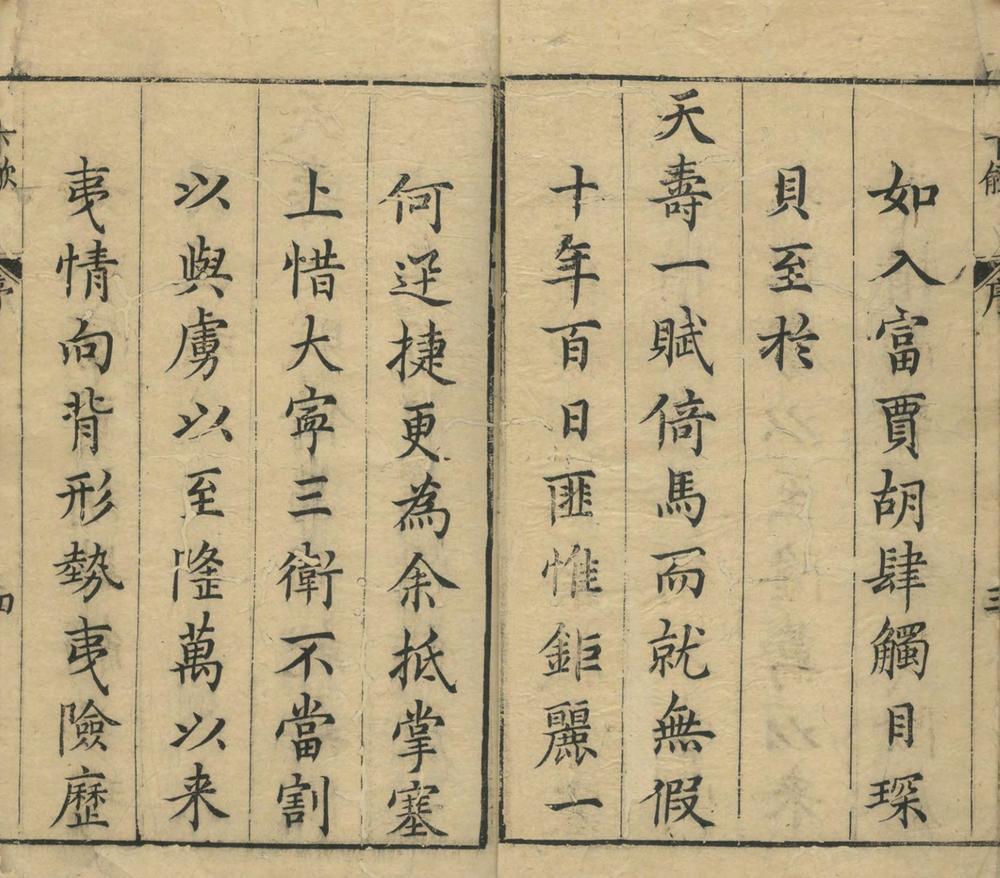 如入富賈胡肆觸目琛
貝至於
天壽一賦倚馬而就無假
十年百日匪惟鉅麗一
何迅捷更為余抵掌塞
上惜大寧三衛不當割
以與虜以至隆萬以来
夷情向背形勢夷險歷